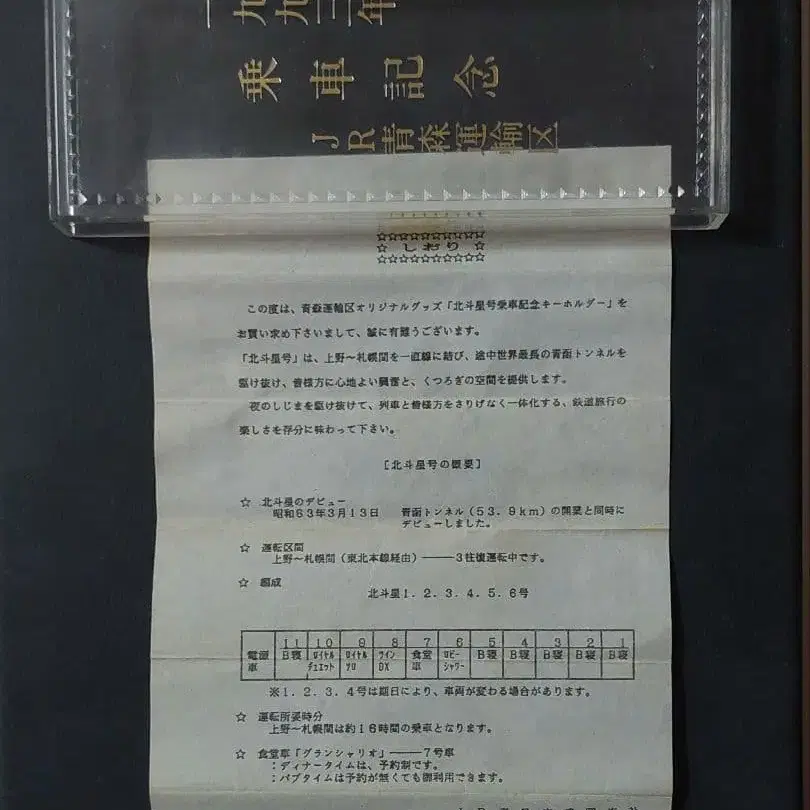 一九九三年
乗車記念
JR青森運輸区
☆☆☆☆☆☆☆☆☆☆
☆ しおり ☆
☆☆☆☆☆☆☆☆☆☆
この度は、青森運輸区オリジナルグッズ「北斗星号乗車記念キーホルダー」を
お買い求め下さいまして、誠に有難うございます。
「北斗星号」は、上野～札幌間を一直線に結び、途中世界最長の青函トンネルを
駆け抜け、皆様方に心地よい興奮と、くつろぎの空間を提供します。
夜のしじまを駆け抜けて、列車と皆様方をさりげなく一体化する、鉄道旅行の
楽しさを存分に味わって下さい。
[北斗星号の概要]
☆ 北斗星のデビュー
昭和63年3月13日 青函トンネル(53.9km)の開業と同時に
デビューしました。
☆ 運転区間
上野～札幌間(東北本線経由)―――3往復運転中です。
☆ 編成
北斗星1.2.3.4.5.6号
11 10 9 8 7 6 5 4 3 2 1
電源 B寝 ロイヤル ロイヤル ツイン 食堂 ロビー B寝 B寝 B寝 B寝 B寝
車 デュエット ソロ DX 車 シャワー
※1.2.3.4号は期日により、車両が変わる場合があります。
☆ 運転所要時分
上野～札幌間は約16時間の乗車となります。
☆ 食堂車「グランシャリオ」―――7号車
:ディナータイムは、予約制です。
:パブタイムは予約が無くても御利用できます。